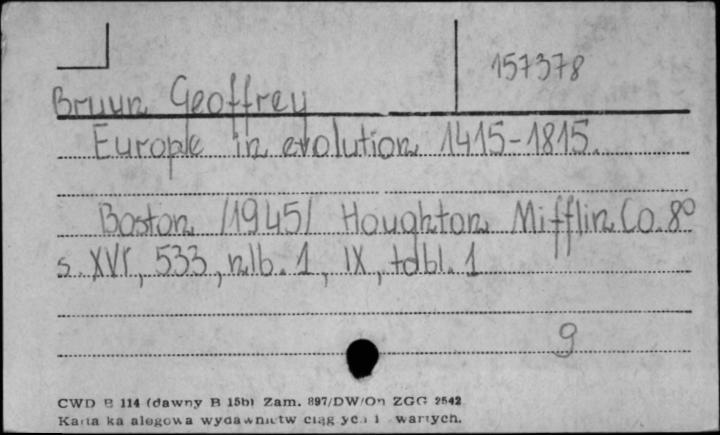 157378
Bruun Geoffrey
Europe in evolution 1415-1815.
Boston /1945/ Houghton Mifflin Co. 8°
s. XVI, 533, nlb. 1, IX, tabl. 1
9
CWD B 114 (dawny B 15b) Zam. 897/DW/On ZGG 2542
Karta ka alogowa wydawnictw ciąg yc i wartych.